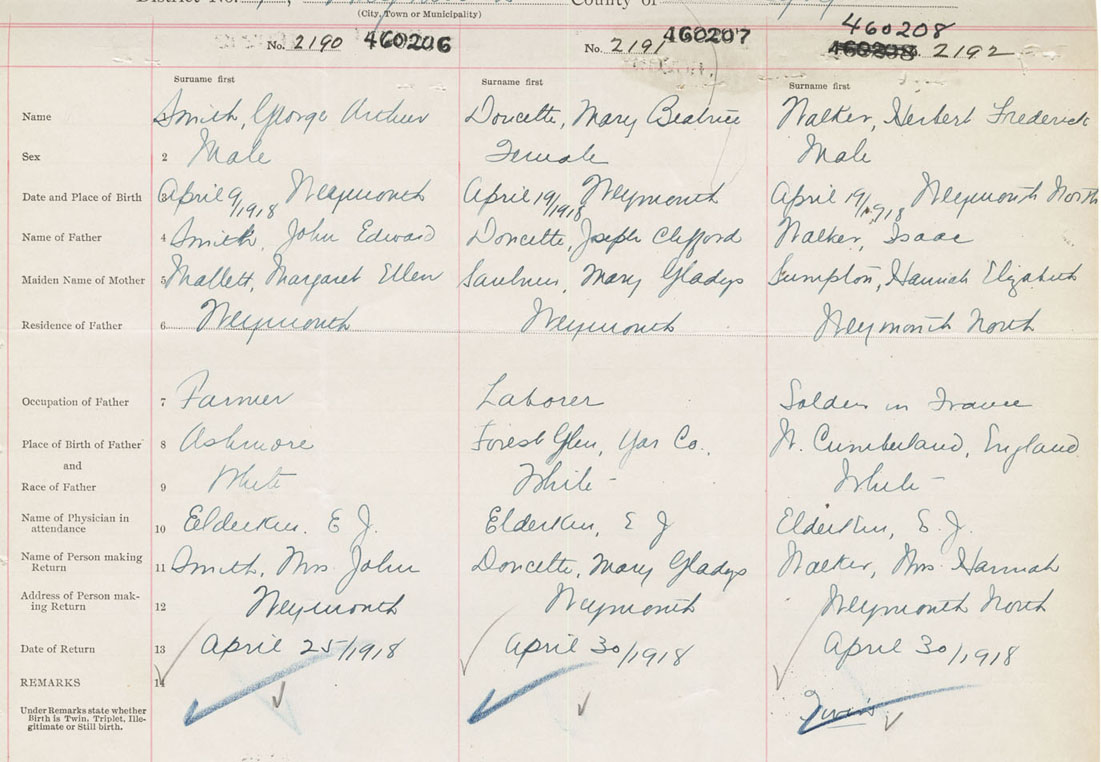 District No. County of
(City, Town or Municipality)
No. 2190 460206 No. 2191 460207 460208
460208 No. 2192
Surname first Surname first Surname first
Name Smith, George Arthur Doucette, Mary Beatrice Walker, Herbert Frederick
Sex 2 Male Female Male
Date and Place of Birth 3 April 9/1918 Weymouth April 19/1918 Weymouth April 19/1918 Weymouth North
Name of Father 4 Smith, John Edward Doucette, Joseph Clifford Walker, Isaac
Maiden Name of Mother 5 Mallett, Margaret Ellen Saulnier, Mary Gladys Sumpton, Hannah Elizabeth
Residence of Father 6 Weymouth Weymouth Weymouth North
Occupation of Father 7 Farmer Laborer Soldier in France
Place of Birth of Father 8 Ashmore Forest Glen, Yar Co., Cumberland, England
and
Race of Father 9 White White - White -
Name of Physician in
attendance 10 Elderkin, E J. Elderkin, E J Elderkin, E. J.
Name of Person making
Return 11 Smith, Mrs John Doucette, Mary Gladys Walker, Mrs Hannah
Address of Person mak-
ing Return 12 Weymouth Weymouth Weymouth North
Date of Return 13 April 25/1918 April 30/1918 April 30/1918
REMARKS 14
Under Remarks state whether
Birth is Twin, Triplet, Ille-
gitimate or Still birth. Twins